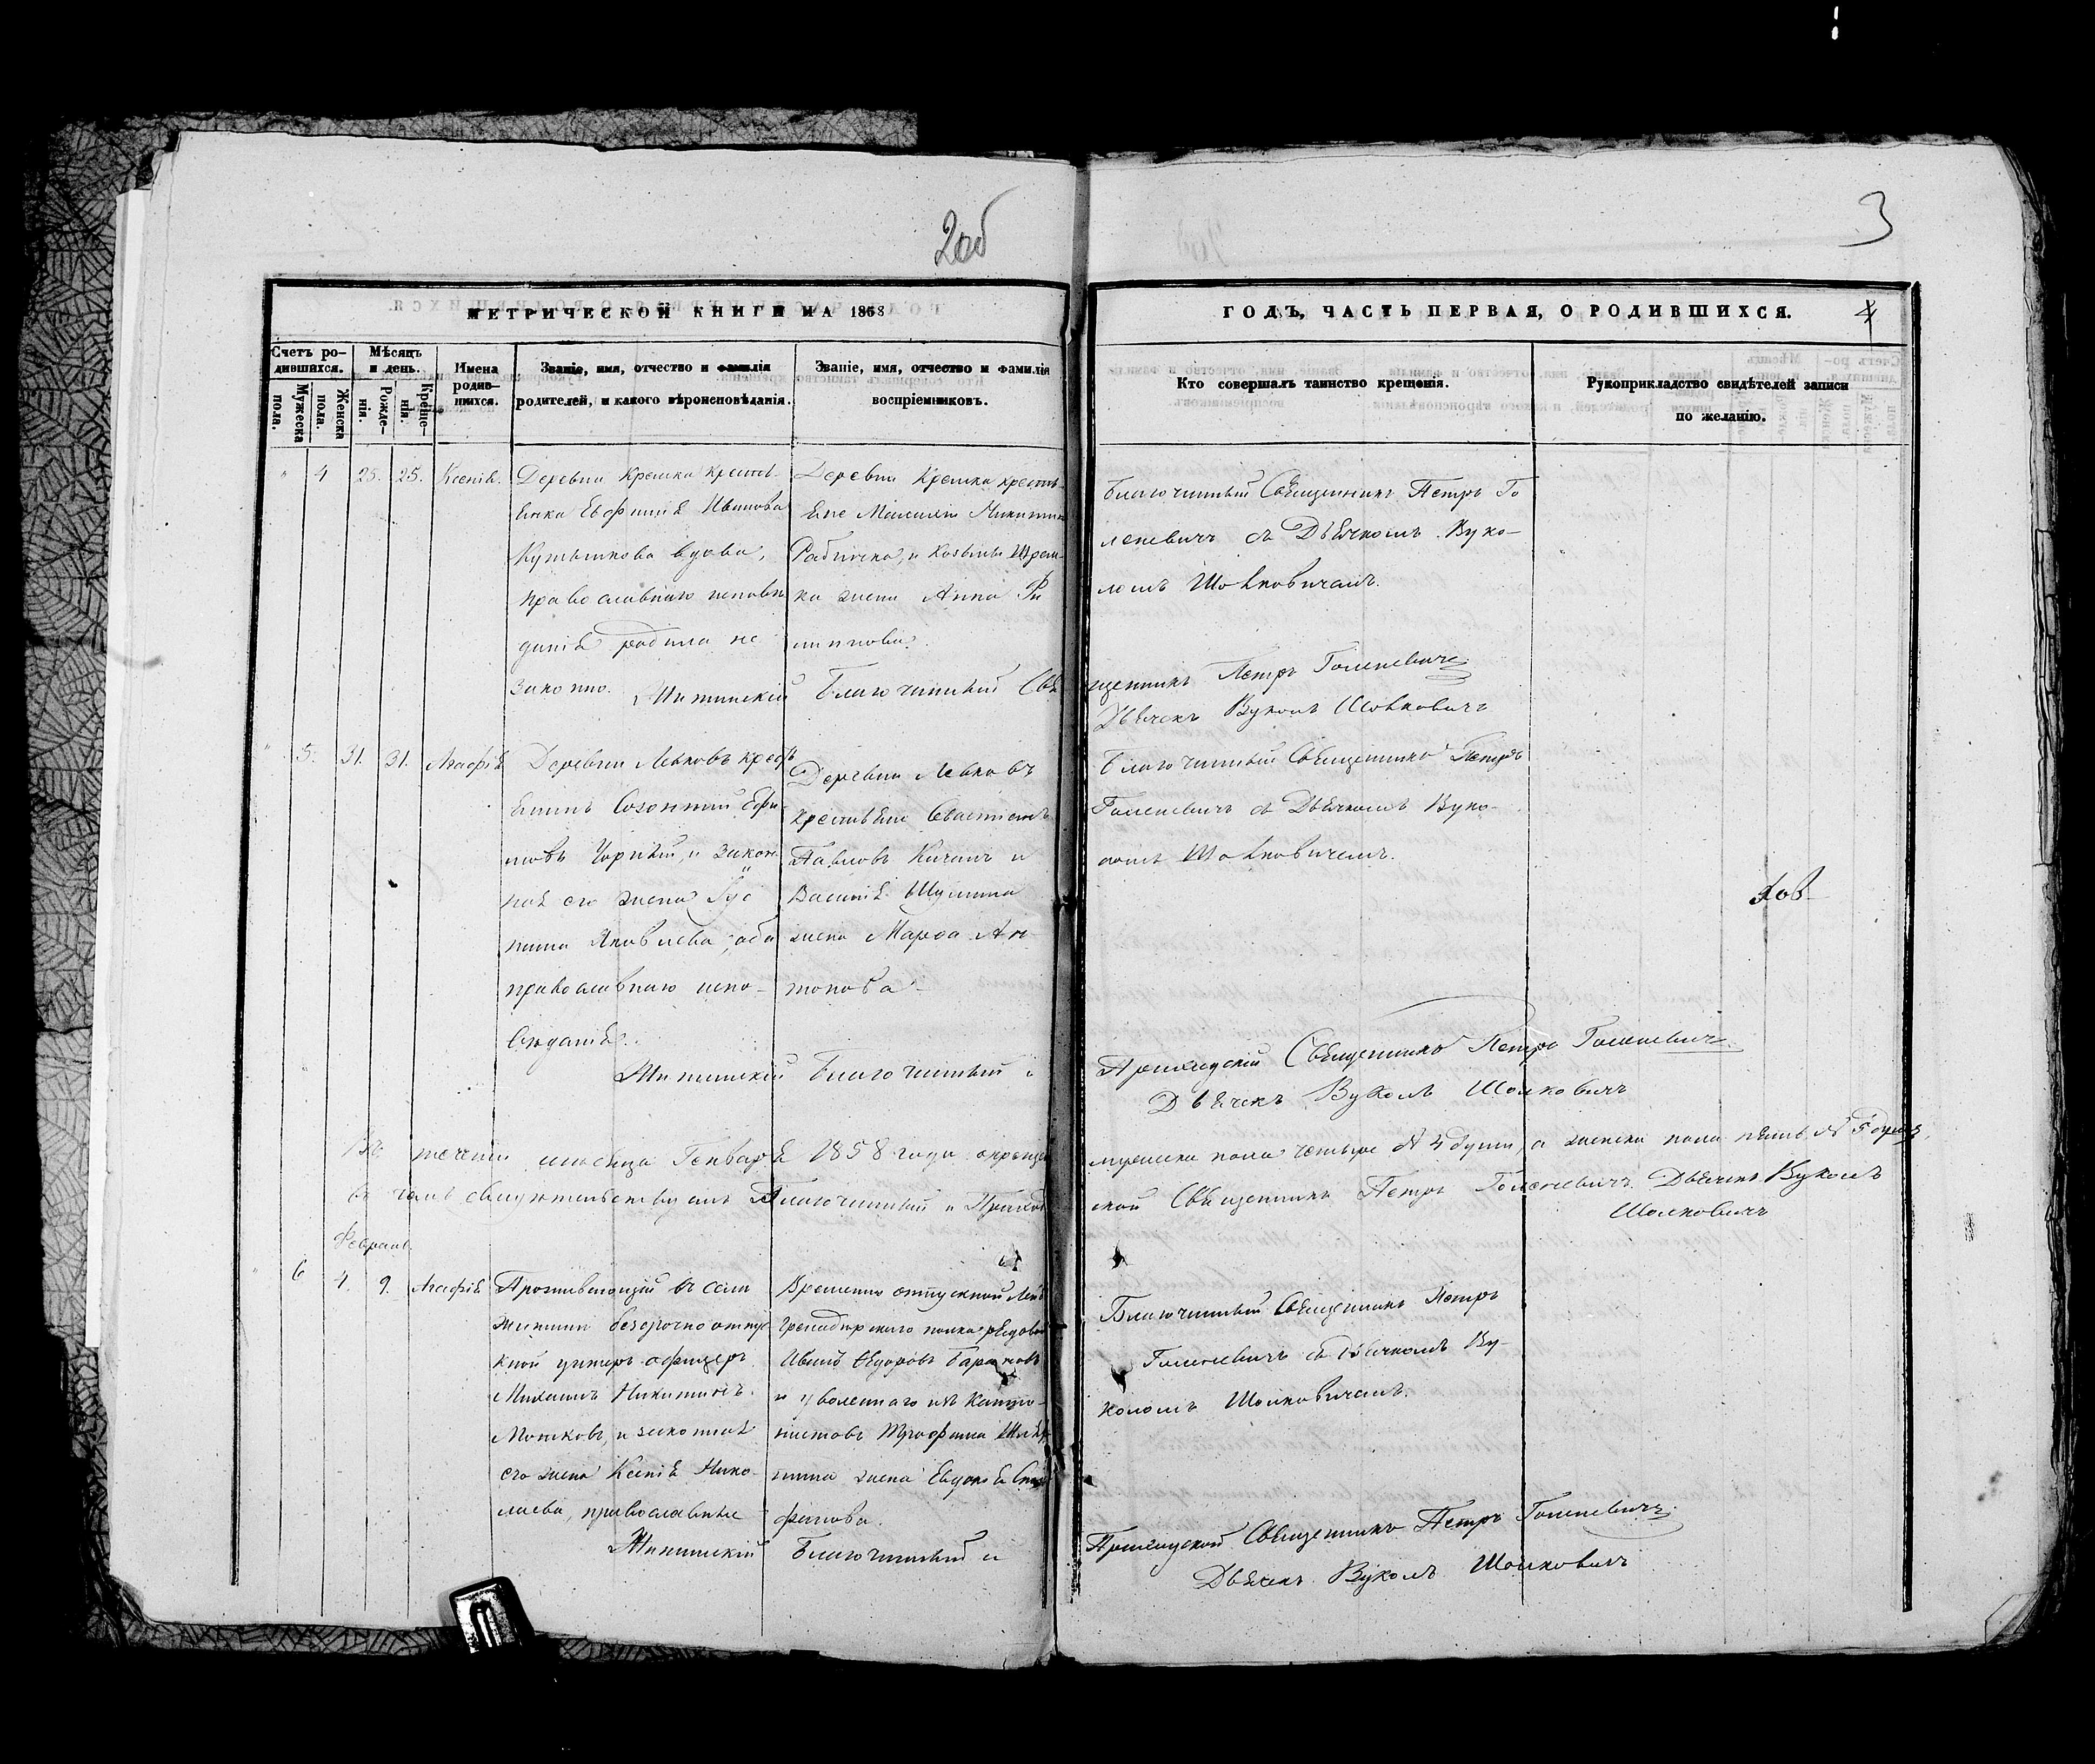 2об
3
МЕТРИЧЕСКОЙ КНИГИ НА 1858
ГОДЪ, ЧАСТЬ ПЕРВАЯ, О РОДИВШИХСЯ.
4
Счетъ ро-
дившихся.
Мужеска
пола.
Женска
пола.
Мѣсяцъ
и день.
Рожде-
нія.
Креще-
нія.
Имена
родив-
шихся.
Званіе, имя, отчество и фамилія
родителей, и какого вѣроисповѣданія.
Званіе, имя, отчество и фамилія
воспріемниковъ.
Кто совершалъ таинство крещенія.
Рукоприкладство свидѣтелей записи
по желанію.
" 4 25. 25. Ксенія.
Деревни Кремка крестя-
янка Евфимія Иванова
вдова,
православнаго исповѣ
данія родила не
законно.
Деревни Кремка крестя-
яне Никитинъ
и
ка жена Анна Фи
липпова.
Благочинный Священникъ Петръ Го
леневичъ съ Дьячкомъ Вуко-
ломъ Шолковичемъ.
Благочинный Свя
щенникъ Петръ Голеневичъ
Дьячекъ Вуколъ Шолковичъ
" 5. 31. 31. Агафія
Деревни Левковъ крест
янинъ Созонтий Ефи
мовъ Чорный, и закон
ная его жена Іус
тина Яковлева, оба
православнаго испо-
вѣданія.
Деревни Левковъ
крестьяне Севастіанъ
Павловъ и
Василія Шулгина
жена Марѳа Ан-
тонова
Благочинный Священникъ Петръ
Голеневичъ съ Дьячкомъ Вуко-
ломъ Шолковичемъ.
Хов
Благочинный и
Приходскій Священникъ Петръ Голеневичъ
Дьячекъ Вуколъ Шолковичъ
Въ теченіи месяца Генваря 1858 года окрещено
мужеска пола четыре № 4 души, а женска пола пять № 5 душъ,
въ чемъ свидѣтельствуемъ Благочинный и Приход
ской Священникъ Петръ Голеневичъ Дьячекъ Вуколъ
Шолковичъ
Февраль.
" 6 4. 9. Агафія
Проживающій въ селѣ
безсрочно отпус
кной унтеръ-офицеръ
Михаилъ Никитинъ
и законная
его жена Ксенія Нико-
лаева, православные
Временно отпускной
Гренадерскаго полка рядовой
Иванъ Ѳедоровъ
и уволеннаго изъ Канто-
нистовъ Трофима
жена Евдокія
фанова.
Благочинный Священникъ Петръ
Голеневичъ съ Дьячкомъ Ву-
коломъ Шолковичемъ.
Благочинный и
Приходской Священникъ Петръ Голеневичъ
Дьячекъ Вуколъ Шолковичъ